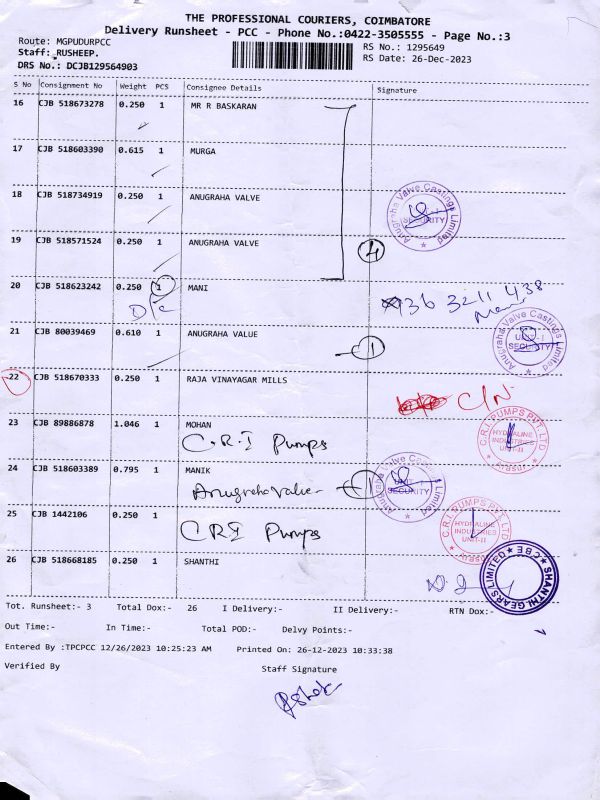 THE PROFESSIONAL COURIERS, COIMBATORE
Delivery Runsheet - PCC - Phone No.:0422-3505555 - Page No.:3
Route: MGPUDURPCC
RS No.: 1295649
Staff: RUSHEEP.
RS Date: 26-Dec-2023
DRS No.: DCJB129564903
S No Consignment No Weight PCS Consignee Details Signature
16 CJB 518673278 0.250 1 MR R BASKARAN
17 CJB 518603390 0.615 1 MURGA
18 CJB 518734919 0.250 1 ANUGRAHA VALVE
Anugraha Valve Castings Limited
SECURITY
19 CJB 518571524 0.250 1 ANUGRAHA VALVE
4
20 CJB 518623242 0.250 1 MANI
D/c
936 3211 438
21 CJB 80039469 0.610 1 ANUGRAHA VALUE
1
Anugraha Valve Castings Limited
UNIT-I
SECURITY
22 CJB 518670333 0.250 1 RAJA VINAYAGAR MILLS
C/N
23 CJB 89886878 1.046 1 MOHAN
C.R.I Pumps
C.R.I. PUMPS PVT. LTD
HYDRALINE
INDUSTRIES
UNIT-II
24 CJB 518603389 0.795 1 MANIK
Anugraha Valve
1
Anugraha Valve Castings Limited
UNIT
SECURITY
25 CJB 1442106 0.250 1
C.R.I Pumps
C.R.I. PUMPS PVT. LTD
HYDRALINE
INDUSTRIES
UNIT-II
26 CJB 518668185 0.250 1 SHANTHI
SHANTHI GEARS LIMITED CBE
Tot. Runsheet:- 3 Total Dox:- 26 I Delivery:- II Delivery:- RTN Dox:-
Out Time:- In Time:- Total POD:- Delvy Points:-
Entered By :TPCPCC 12/26/2023 10:25:23 AM Printed On: 26-12-2023 10:33:38
Verified By Staff Signature